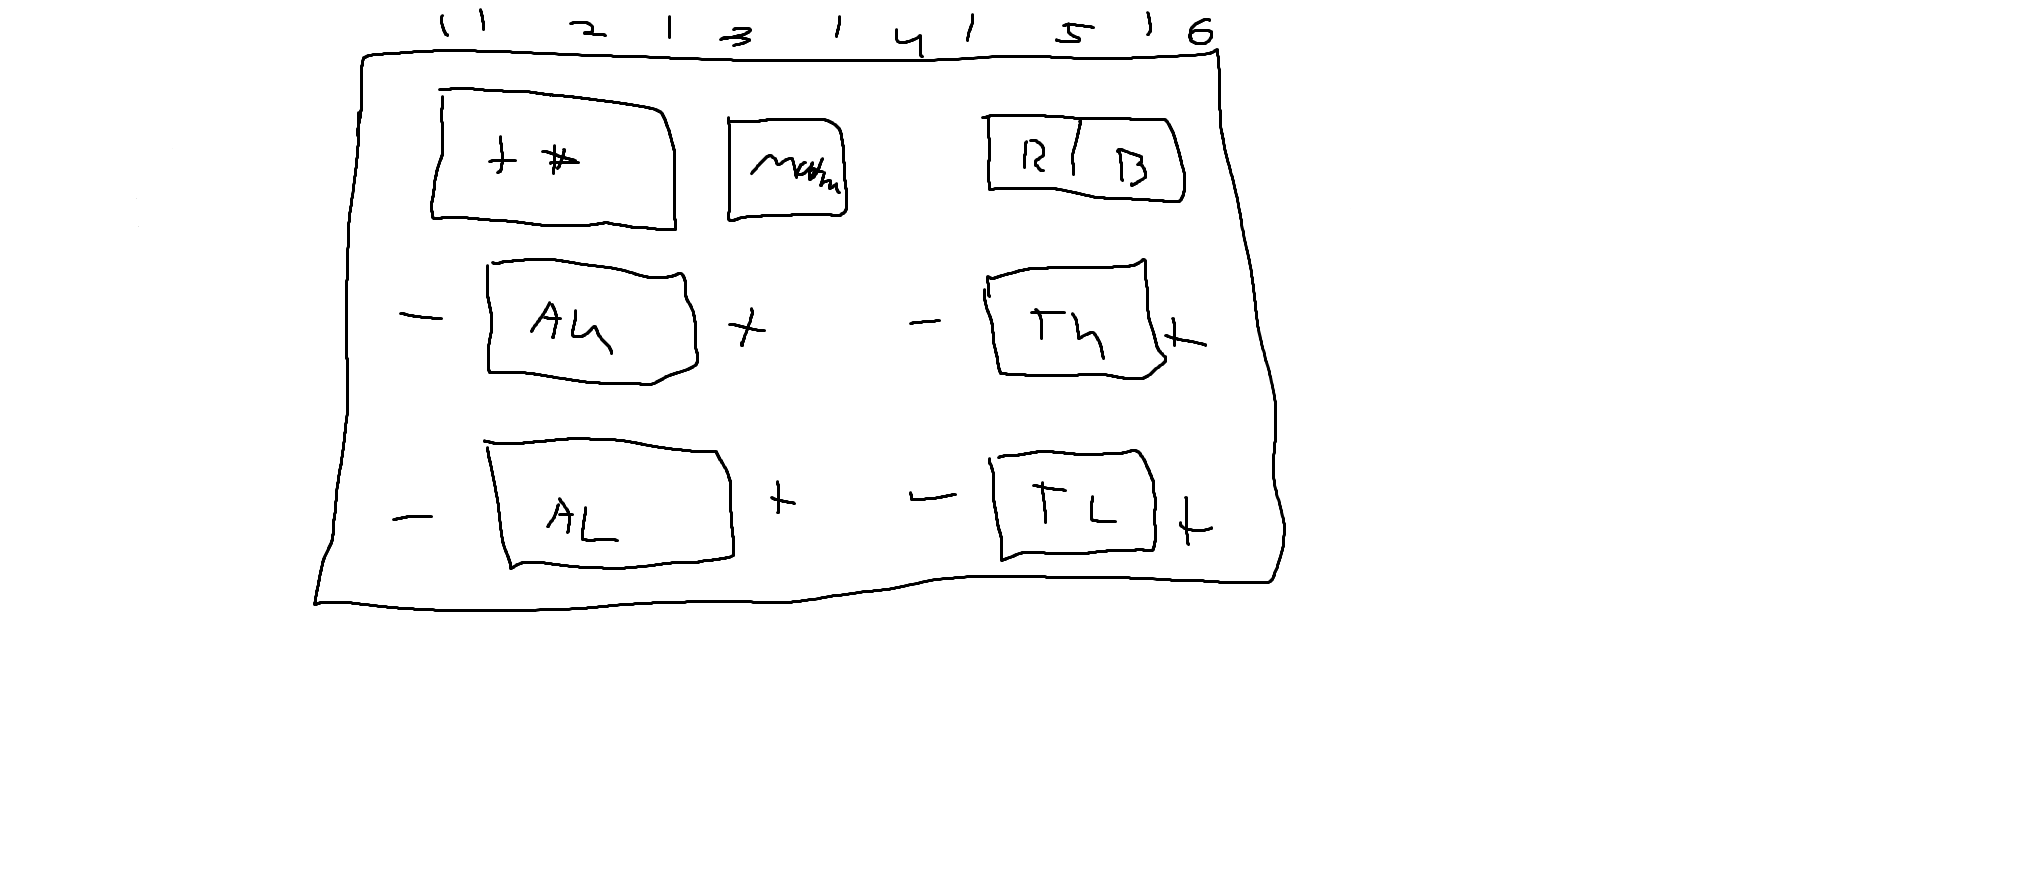 1 | 2 | 3 | 4 | 5 | 6
+ # Math R B
- Ah + - Th +
- AL + - TL +